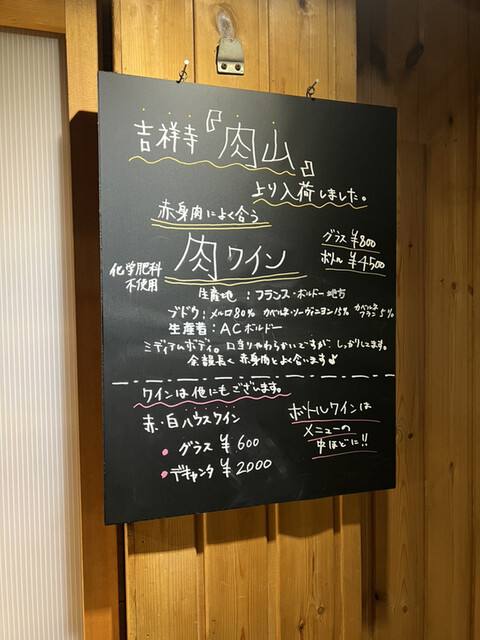 吉祥寺『肉山』
より入荷しました。
赤身肉によく合う
肉ワイン
グラス ¥800
ボトル ¥4500
化学肥料
不使用
生産地：フランス・ボルドー地方
ブドウ：メルロ80% カベルネ・ソーヴィニヨン15% カベルネフラン5%
生産者：ACボルドー
ミディアムボディ。口当りやわらかいですが、しっかりしてます。
余韻長く赤身肉とよく合います♪
ワインは他にもございます。
赤・白ハウスワイン
・グラス ¥600
・デキャンタ ¥2000
ボトルワインは
メニューの
中ほどに!!